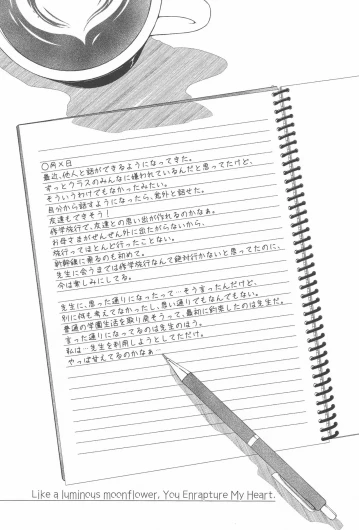 〇月×日
最近、他人と話ができるようになってきた。
ずっとクラスのみんなに嫌われているんだと思ってたけど、
そういうわけでもなかったみたい。
自分から話すようになったら、意外と話せた。
友達もできそう！
修学旅行で、友達との思い出が作れるのかなぁ。
お母さまがぜんぜん外に出たがらないから、
旅行ってほとんど行ったことない。
新幹線に乗るのも初めて。
先生に会うまでは修学旅行なんて絶対行かないと思ってたのに、
今は楽しみにしてる。
先生に、思った通りになったって…そう言ったんだけど、
別に何も考えてなかったし、思い通りでもなんでもない。
普通の学園生活を取り戻そうって、最初に約束したのは先生だ。
言った通りになってるのは先生のほう。
私は…先生を利用しようとしてただけ。
やっぱ甘えてるのかなぁ
Like a luminous moonflower, You Enrapture My Heart.